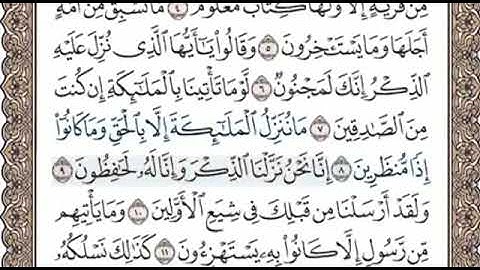 مِن قَرْيَةٍ إِلَّا وَلَهَا كِتَابٌ مَّعْلُومٌ ٤ مَّا تَسْبِقُ مِنْ أُمَّةٍ
أَجَلَهَا وَمَا يَسْتَـْٔخِرُونَ ٥ وَقَالُوا۟ يَـٰٓأَيُّهَا ٱلَّذِى نُزِّلَ عَلَيْهِ
ٱلذِّكْرُ إِنَّكَ لَمَجْنُونٌ ٦ لَّوْ مَا تَأْتِينَا بِٱلْمَلَـٰٓئِكَةِ إِن كُنتَ
مِنَ ٱلصَّـٰدِقِينَ ٧ مَا نُنَزِّلُ ٱلْمَلَـٰٓئِكَةَ إِلَّا بِٱلْحَقِّ وَمَا كَانُوٓا۟
إِذًا مُّنظَرِينَ ٨ إِنَّا نَحْنُ نَزَّلْنَا ٱلذِّكْرَ وَإِنَّا لَهُۥ لَحَـٰفِظُونَ ٩
وَلَقَدْ أَرْسَلْنَا مِن قَبْلِكَ فِى شِيَعِ ٱلْأَوَّلِينَ ١٠ وَمَا يَأْتِيهِم
مِّن رَّسُولٍ إِلَّا كَانُوا۟ بِهِۦ يَسْتَهْزِءُونَ ١١ كَذَٰلِكَ نَسْلُكُهُۥ